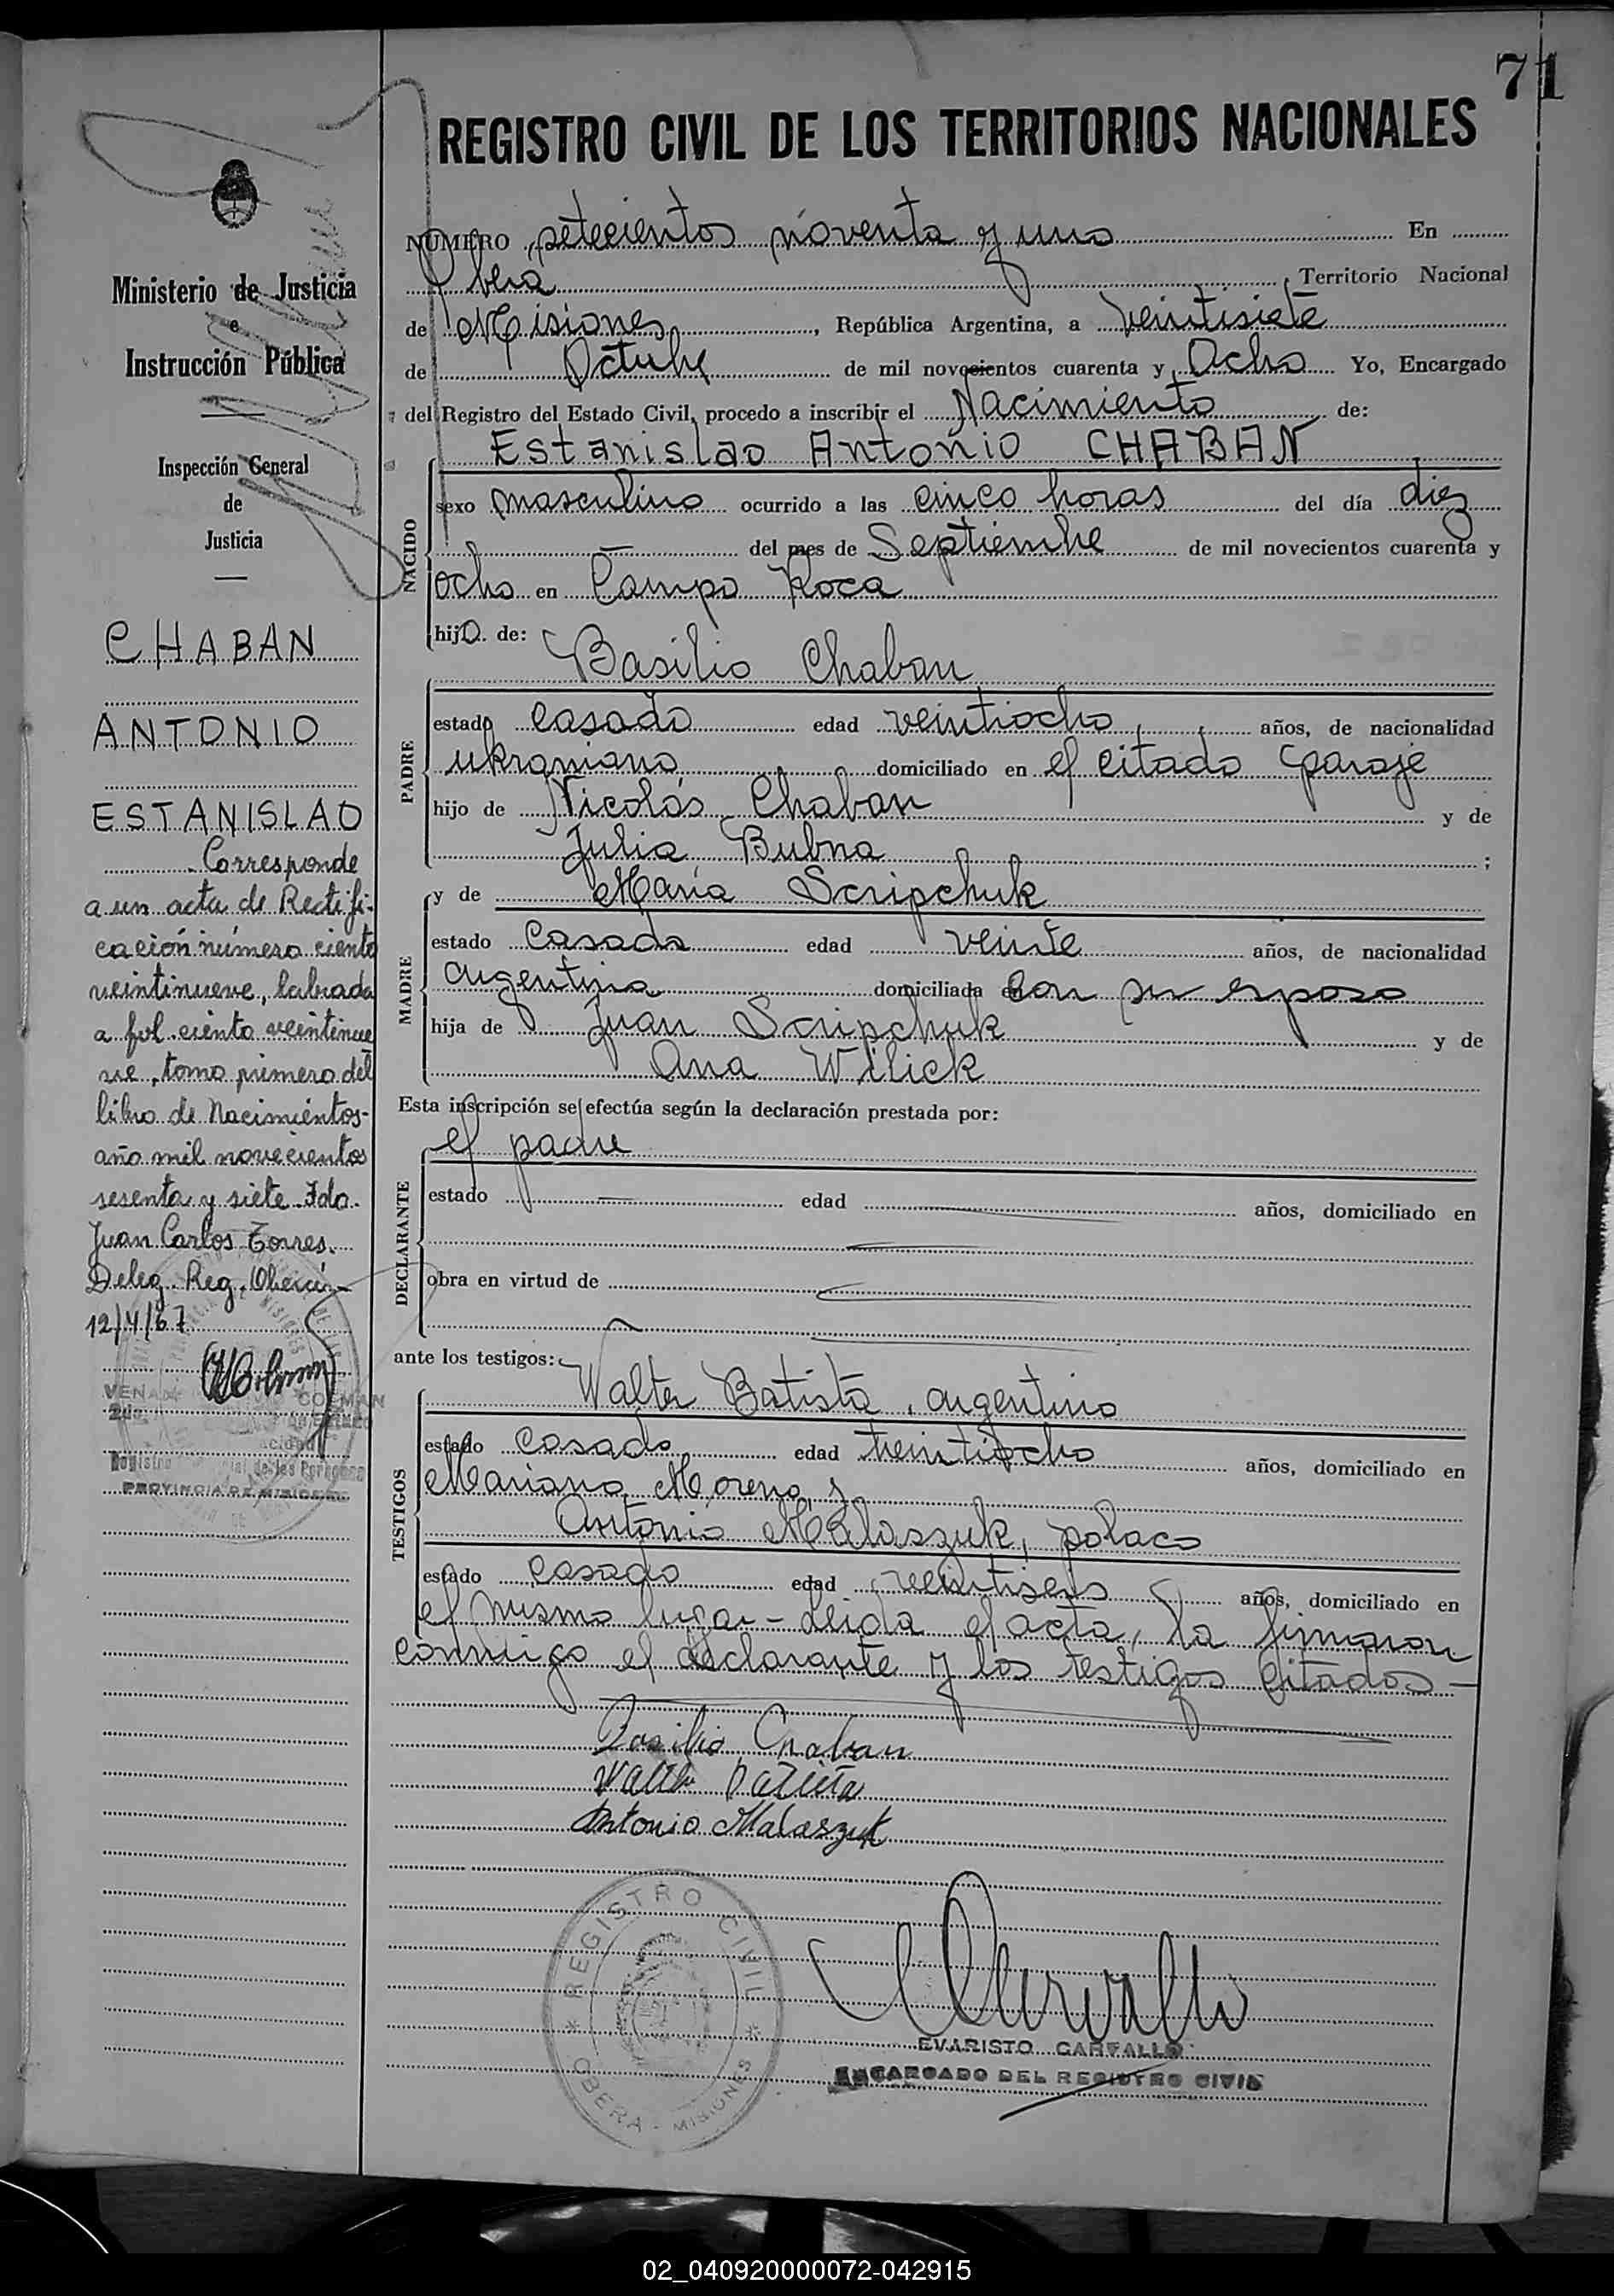 71
REGISTRO CIVIL DE LOS TERRITORIOS NACIONALES
Ministerio de Justicia
e
Instrucción Pública
Inspección General
de
Justicia
CHABAN
ANTONIO
ESTANISLAO
Corresponde
a un acta de Rectifi-
cación número ciento
veintinueve, labrada
a fol. ciento veintinue
ve, tomo primero del
libro de Nacimientos-
año mil novecientos
sesenta y siete. Fdo.
Juan Carlos Torres.
Deleg. Reg. Oberá
12/4/67
PROVINCIA DE MISIONES
NÚMERO setecientos noventa y uno En
Obera, Territorio Nacional
de Misiones, República Argentina, a veintisiete
de Octubre de mil novecientos cuarenta y Ocho Yo, Encargado
del Registro del Estado Civil, procedo a inscribir el Nacimiento de:
Estanislao Antonio CHABAN
NACIDO
sexo masculino ocurrido a las cinco horas del día diez
— del mes de Septiembre de mil novecientos cuarenta y
ocho en Campo Roca
hijo de:
Basilio Chaban
PADRE
estado casado edad veintiocho años, de nacionalidad
ukraniano domiciliado en el citado paraje
hijo de Nicolás Chaban y de
Julia Bubna ;
y de María Scripchuk
MADRE
estado casada edad veinte años, de nacionalidad
argentina domiciliada en con su esposo
hija de Juan Scripchuk y de
Ana Wilick
Esta inscripción se efectúa según la declaración prestada por:
el padre
DECLARANTE
estado — edad — años, domiciliado en
obra en virtud de
ante los testigos:
Walter Batista, argentino
TESTIGOS
estado casado edad treintiocho años, domiciliado en
Mariano Moreno y
Antonio Malaszuk, polaco
estado casado edad veintiseis años, domiciliado en
el mismo lugar - Leida el acta, la firmaron
conmigo el declarante y los testigos citados -
Basilio Chaban
Walter Batista
Antonio Malaszuk
REGISTRO CIVIL
OBERA - MISIONES
EVARISTO CARVALLO
ENCARGADO DEL REGISTRO CIVIL
02_040920000072-042915